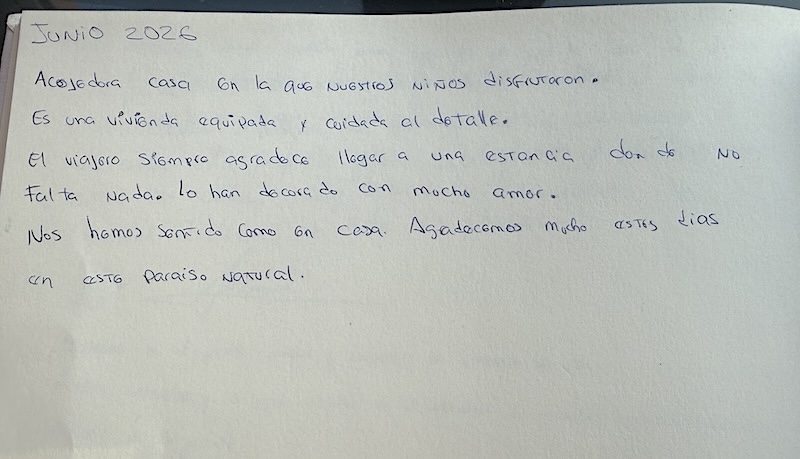 JUNIO 2026
Acojedora casa en la que nuestros niños disfrutaron.
Es una vivienda equipada y cuidada al detalle.
El viajero siempre agradece llegar a una estancia donde no
falta nada. Lo han decorado con mucho amor.
Nos hemos sentido como en casa. Agadecemos mucho estos dias
en este paraiso natural.